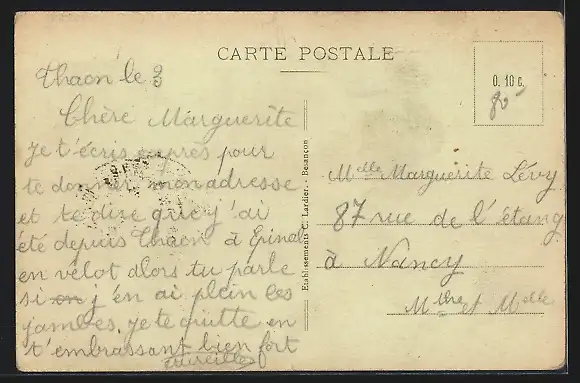 CARTE POSTALE
Thaon le 3
Chère Marguerite
je t'écris exprès pour
te donner mon adresse
et te dire que j'ai
été depuis Thaon à Epinal
en vélot alors tu parle
si en j'en ai plein les
jambes. je te quitte en
t'embrassant bien fort
Etablissements C. Lardier - Besançon
O. 10 c.
80
Melle Marguerite Lévy
87 rue de l'étang
à Nancy
Mthe et Melle